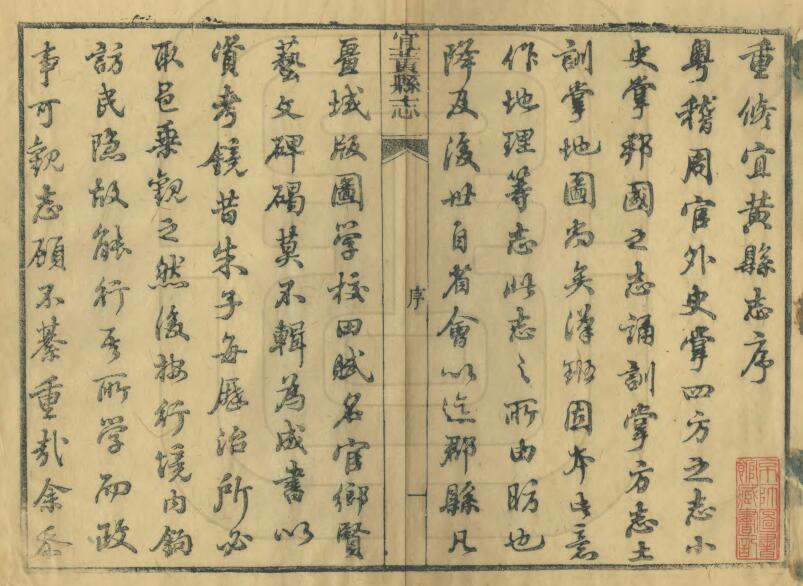 重修宜黃縣志序
粵稽周官外史掌四方之志小
史掌邦國之志誦訓掌方志土
訓掌地圖尚矣漢班固本此意
作地理等志此志之所由昉也
降及後世自省會以迄郡縣凡
宜黃縣志
序
一
畺域版圖學校田賦名宦鄉賢
藝文碑碣莫不輯為成書以
資考鏡昔朱子每歷治所必
取邑乘觀之然後按行境內詢
訪民隱故能行其所學而政
事可觀志顧不綦重哉余忝